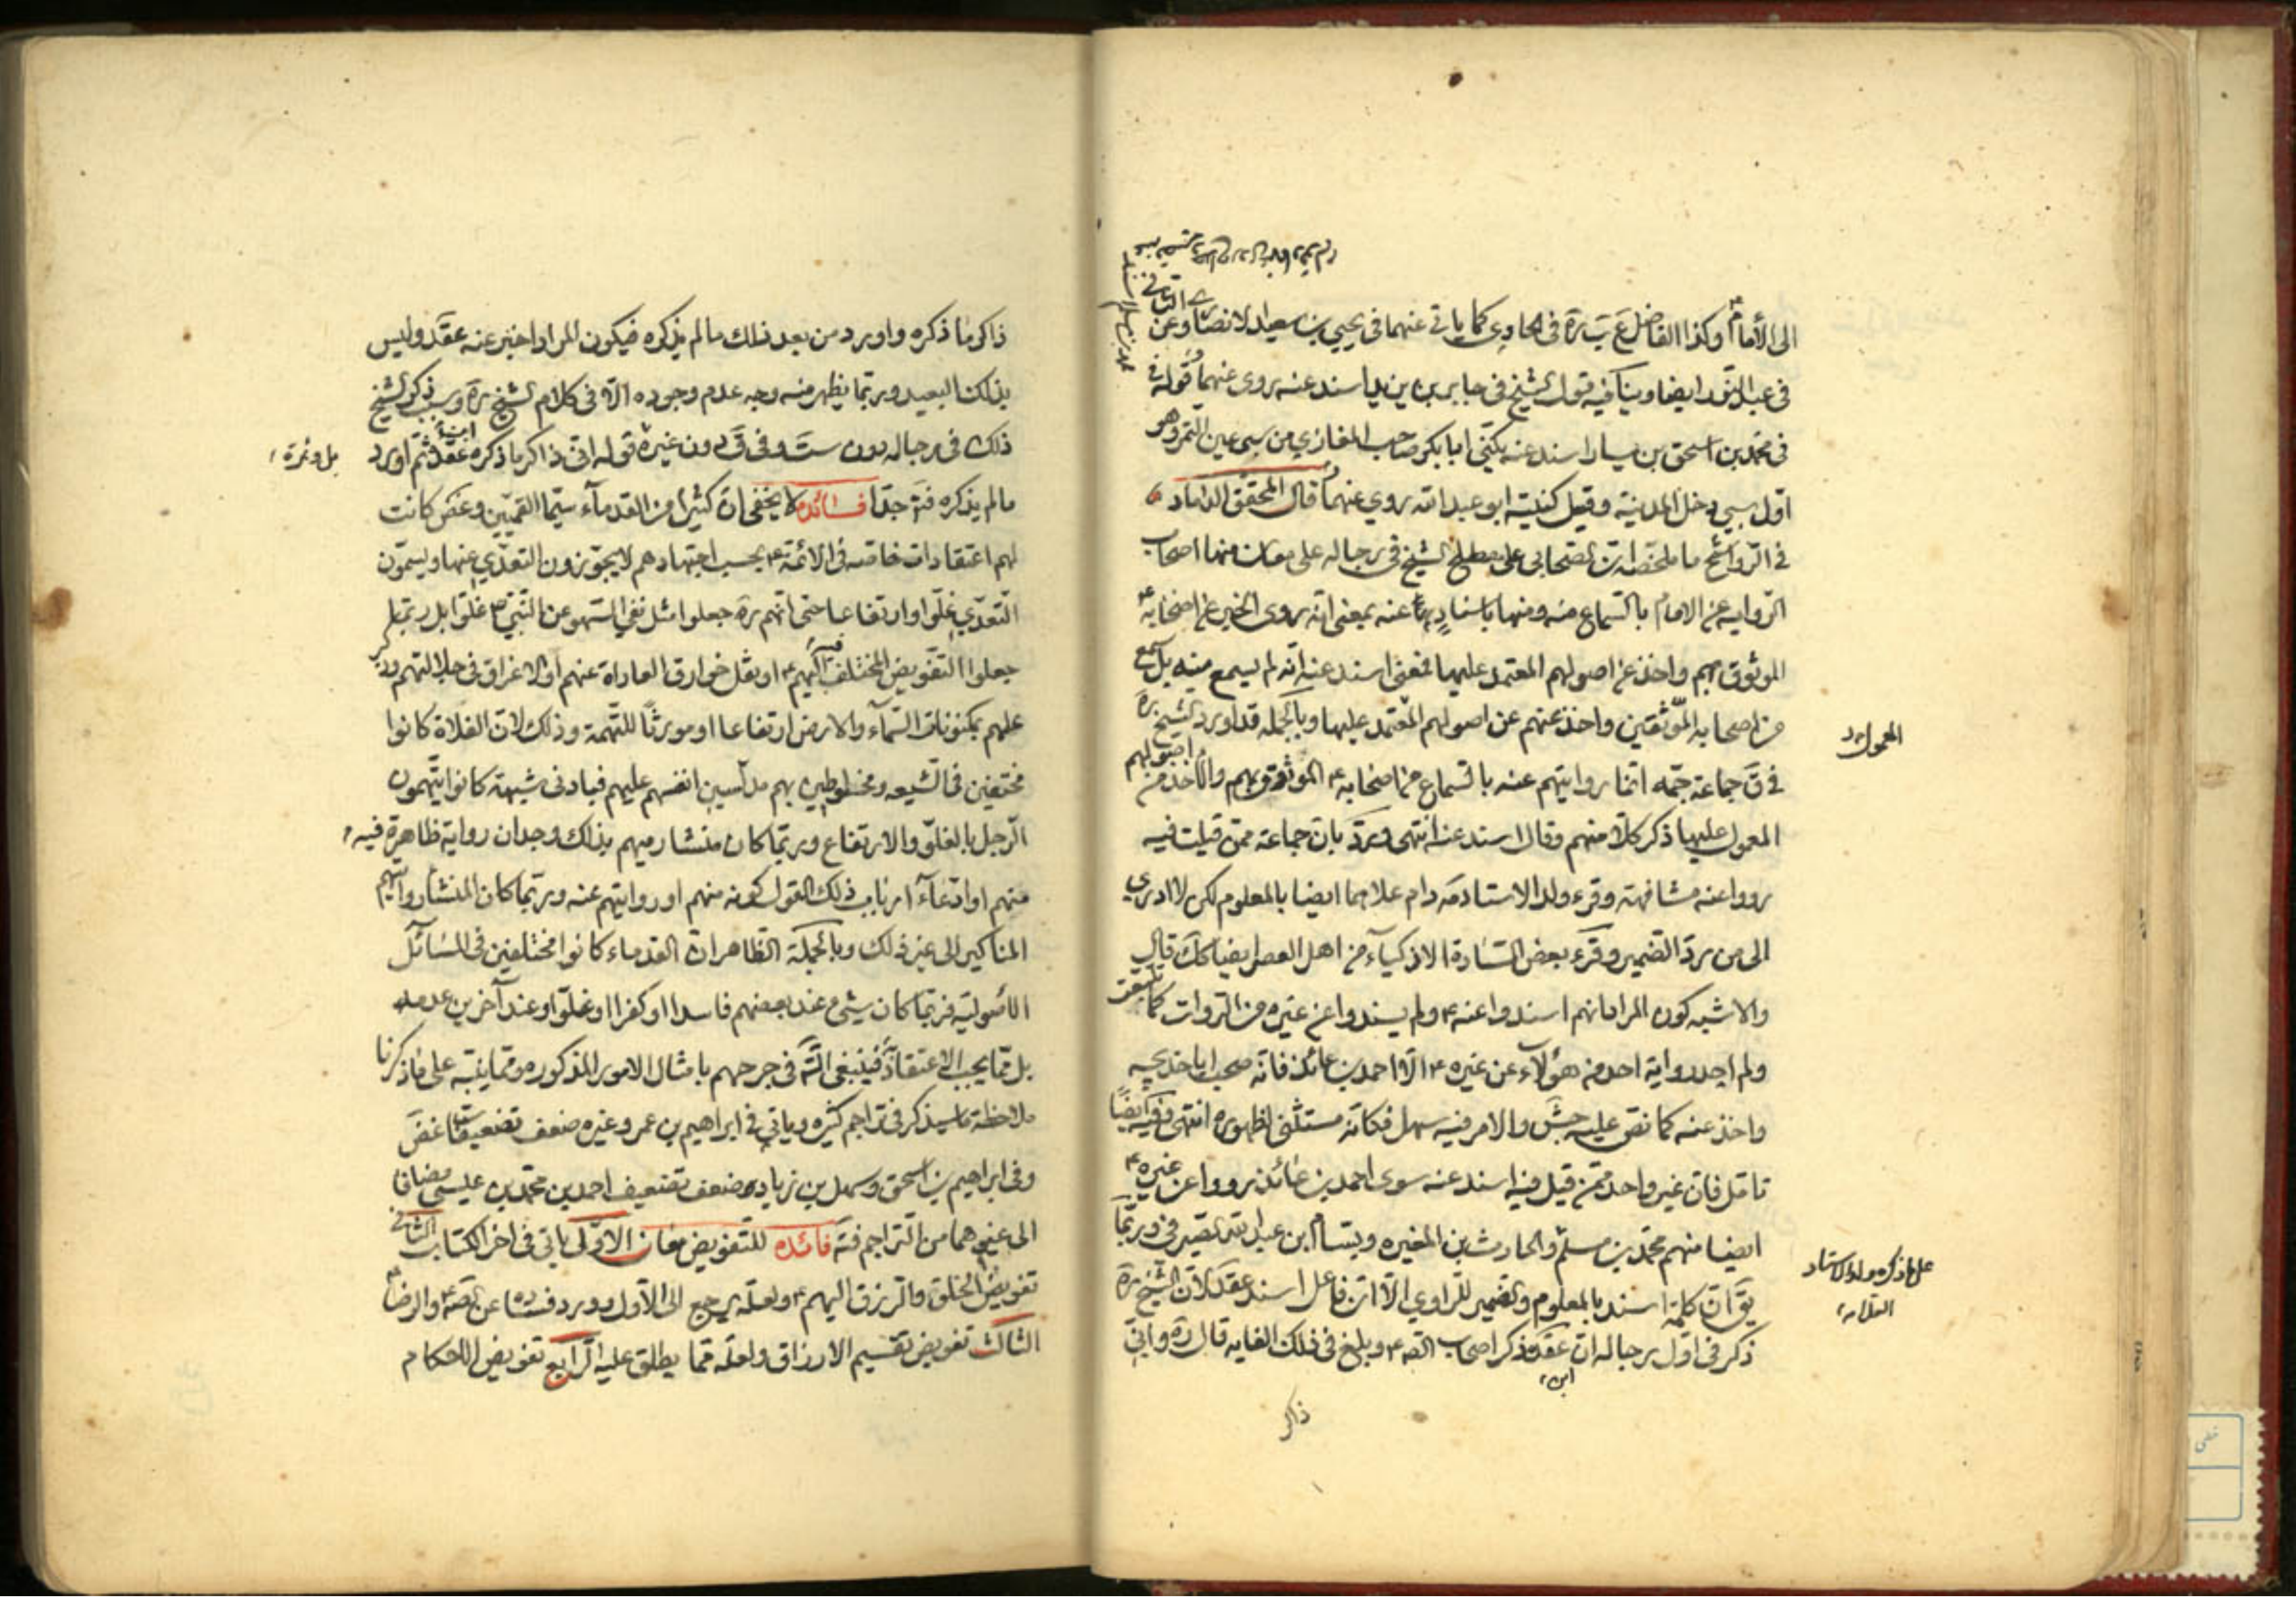 الى الأمام ع وكذا الفاضل عبد النبى الجزائرى ره فى الحاوى كما ياتى عنهما فى يحيى بن سعيد الانصارى وعن الثانى
فى عبد النور ايضا وينافيه قول الشيخ فى جابر بن يزيد اسند عنه روى عنهما وقوله
فى محمد بن اسحق بن يسار اسند عنه يكنى ابا بكر صاحب المغازى من سبى عين التمر وهو
اول سبى دخل المدينة وقيل كنيته ابو عبد الله روى عنهما وقال المحقق الداماد
فى الرواشح ما ملخصه ان الصحابى على مصطلح الشيخ فى رجاله على معان منها اصحاب
الرواية عن الامام بالسماع منه ومنها باسناد عنه بمعنى انه روى الخبر عن اصحابه ع
الموثوق بهم واخذ عن اصولهم المعتمد عليها فمعنى اسند عنه انه لم يسمع منه بل سمع
من اصحابه الموثقين واخذ عنهم عن اصولهم المعتمد عليها وبالجمله قد اورد الشيخ ره
فى ق جماعة جمه انما روايتهم عنه بالسماع من اصحابه ع الموثوق بهم والأخذ من اصولهم
المعول عليها ذكر كلا منهم وقال اسند عنه انتهى ويرد بان جماعة ممن قيلت فيه
رووا عنه مشافهة وقرء ولد الاستاد مد دام علاهما ايضا بالمعلوم لكن لا ادرى
الى من رد الضمير وقرء بعض السادة الاذكياء من اهل العصر ايضا كك قال
والاشبه كون المراد انهم اسندوا عنه ع ولم يسندوا عن غيره من الروات كما تتبعت
ولم اجد رواية احد من هؤلاء عن غيره ع الا احمد بن عائذ فانه صحب ابا خديجه
واخذ عنه كما نص عليه جش والامر فيه سهل فكانه مستثنى لظهوره انتهى وفيه ايضا
تامل فان غير واحد ممن قيل فيه اسند عنه سوى احمد بن عائذ رووا عن غيره ع
ايضا منهم محمد بن مسلم والحارث بن المغيره وبسام بن عبد الله الصيرفى وربما
يق ان كلمة اسند بالمعلوم والضمير للراوى الا ان فاعل اسند عقد لان الشيخ ره
ذكر فى اول رجاله ان عقد ذكر اصحاب الصه ع وبلغ فى ذلك الغايه قال ره وانى
ابن
ذاكر
المعول
على ما ذكره ولد الاستاد
العلامه
ذاكر ما ذكره واورد من بعد ذلك ما لم يذكره فيكون المراد اخبر عنه عقد وليس
بذلك البعيد وربما يظهر منه وجه عدم وجوده الا فى كلام الشيخ ره وسبب ذكر الشيخ
ذلك فى رجاله دون ست وفى ق دون غيره قوله انى ذاكر ما ذكره ابن عقد ثم اورد
ما لم يذكره فتدبر جدا فائده لا يخفى ان كثيرا من القدماء سيما القميين وغض كانت
لهم اعتقادات خاصه فى الائمة ع بحسب اجتهادهم لا يجوزون التعدى عنها ويسمون
التعدى غلوا وارتفاعا حتى انهم ره جعلوا مثل نفى السهو عن النبى ص غلوا بل ربما
جعلوا التفويض المختلف فيه اليهم ع او نقل خوارق العادات عنهم او الاغراق فى جلالتهم وذكر
علمهم بمكنونات السماء والارض ارتفاعا او مورثا للتهمة وذلك لان الغلاة كانوا
مختفين فى الشيعه ومخلوطين بهم مدلسين انفسهم عليهم فبادنى شبهة كانوا يتهمون
الرجل بالغلو والارتفاع وربما كان منشا رميهم بذلك وجدان رواية ظاهرة فيه
منهم او ادعاء ارباب ذلك القول كونه منهم او روايتهم عنه وربما كان المنشأ روايتهم
المناكير الى غير ذلك وبالجملة الظاهر ان القدماء كانوا مختلفين فى المسائل
الاصولية فربما كان شىء عند بعضهم فاسدا او كفرا او غلوا وعند آخرين عدمه
بل مما يجب الاعتقاد به فينبغى التامل فى جرحهم بامثال الامور المذكوره ومما ينبه على ما ذكرنا
ملاحظة ما سيذكر فى تراجم كثيره وياتى فى ابراهيم بن عمر وغيره ضعف تضعيفات غض
وفى ابراهيم بن اسحق وسهل بن زياد ضعف تضعيف احمد بن محمد بن عيسى مضافا
الى غيرهما من التراجم فتد فائده للتفويض معان الاول ياتى فى اخر الكتاب الثانى
تفويض الخلق والرزق اليهم ع ولعله يرجع الى الاول وورد فساده عن الصه ع والرضا ع
الثالث تفويض تقسيم الارزاق ولعله مما يطلق عليه الرابع تفويض الاحكام